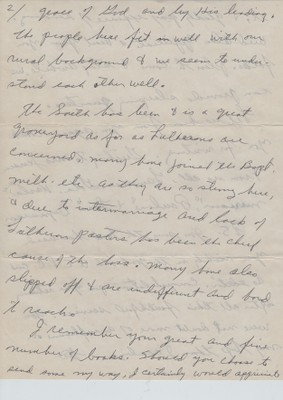 2/ grace of God and by His leading.
The people here fit in well with our
rural background & we seem to under-
stand each other well.
The South has been & is a great
graveyard as far as Lutherans are
concerned. Many have joined the Bapt.
Meth. etc. as they are so strong here,
& due to intermarriage and lack of
Lutheran pastors has been the chief
cause of the loss. Many have also
slipped off & are indifferent and hard
to reach.
I remember your great and fine
number of books. Should you choose to
send some my way, I certainly would appreciate